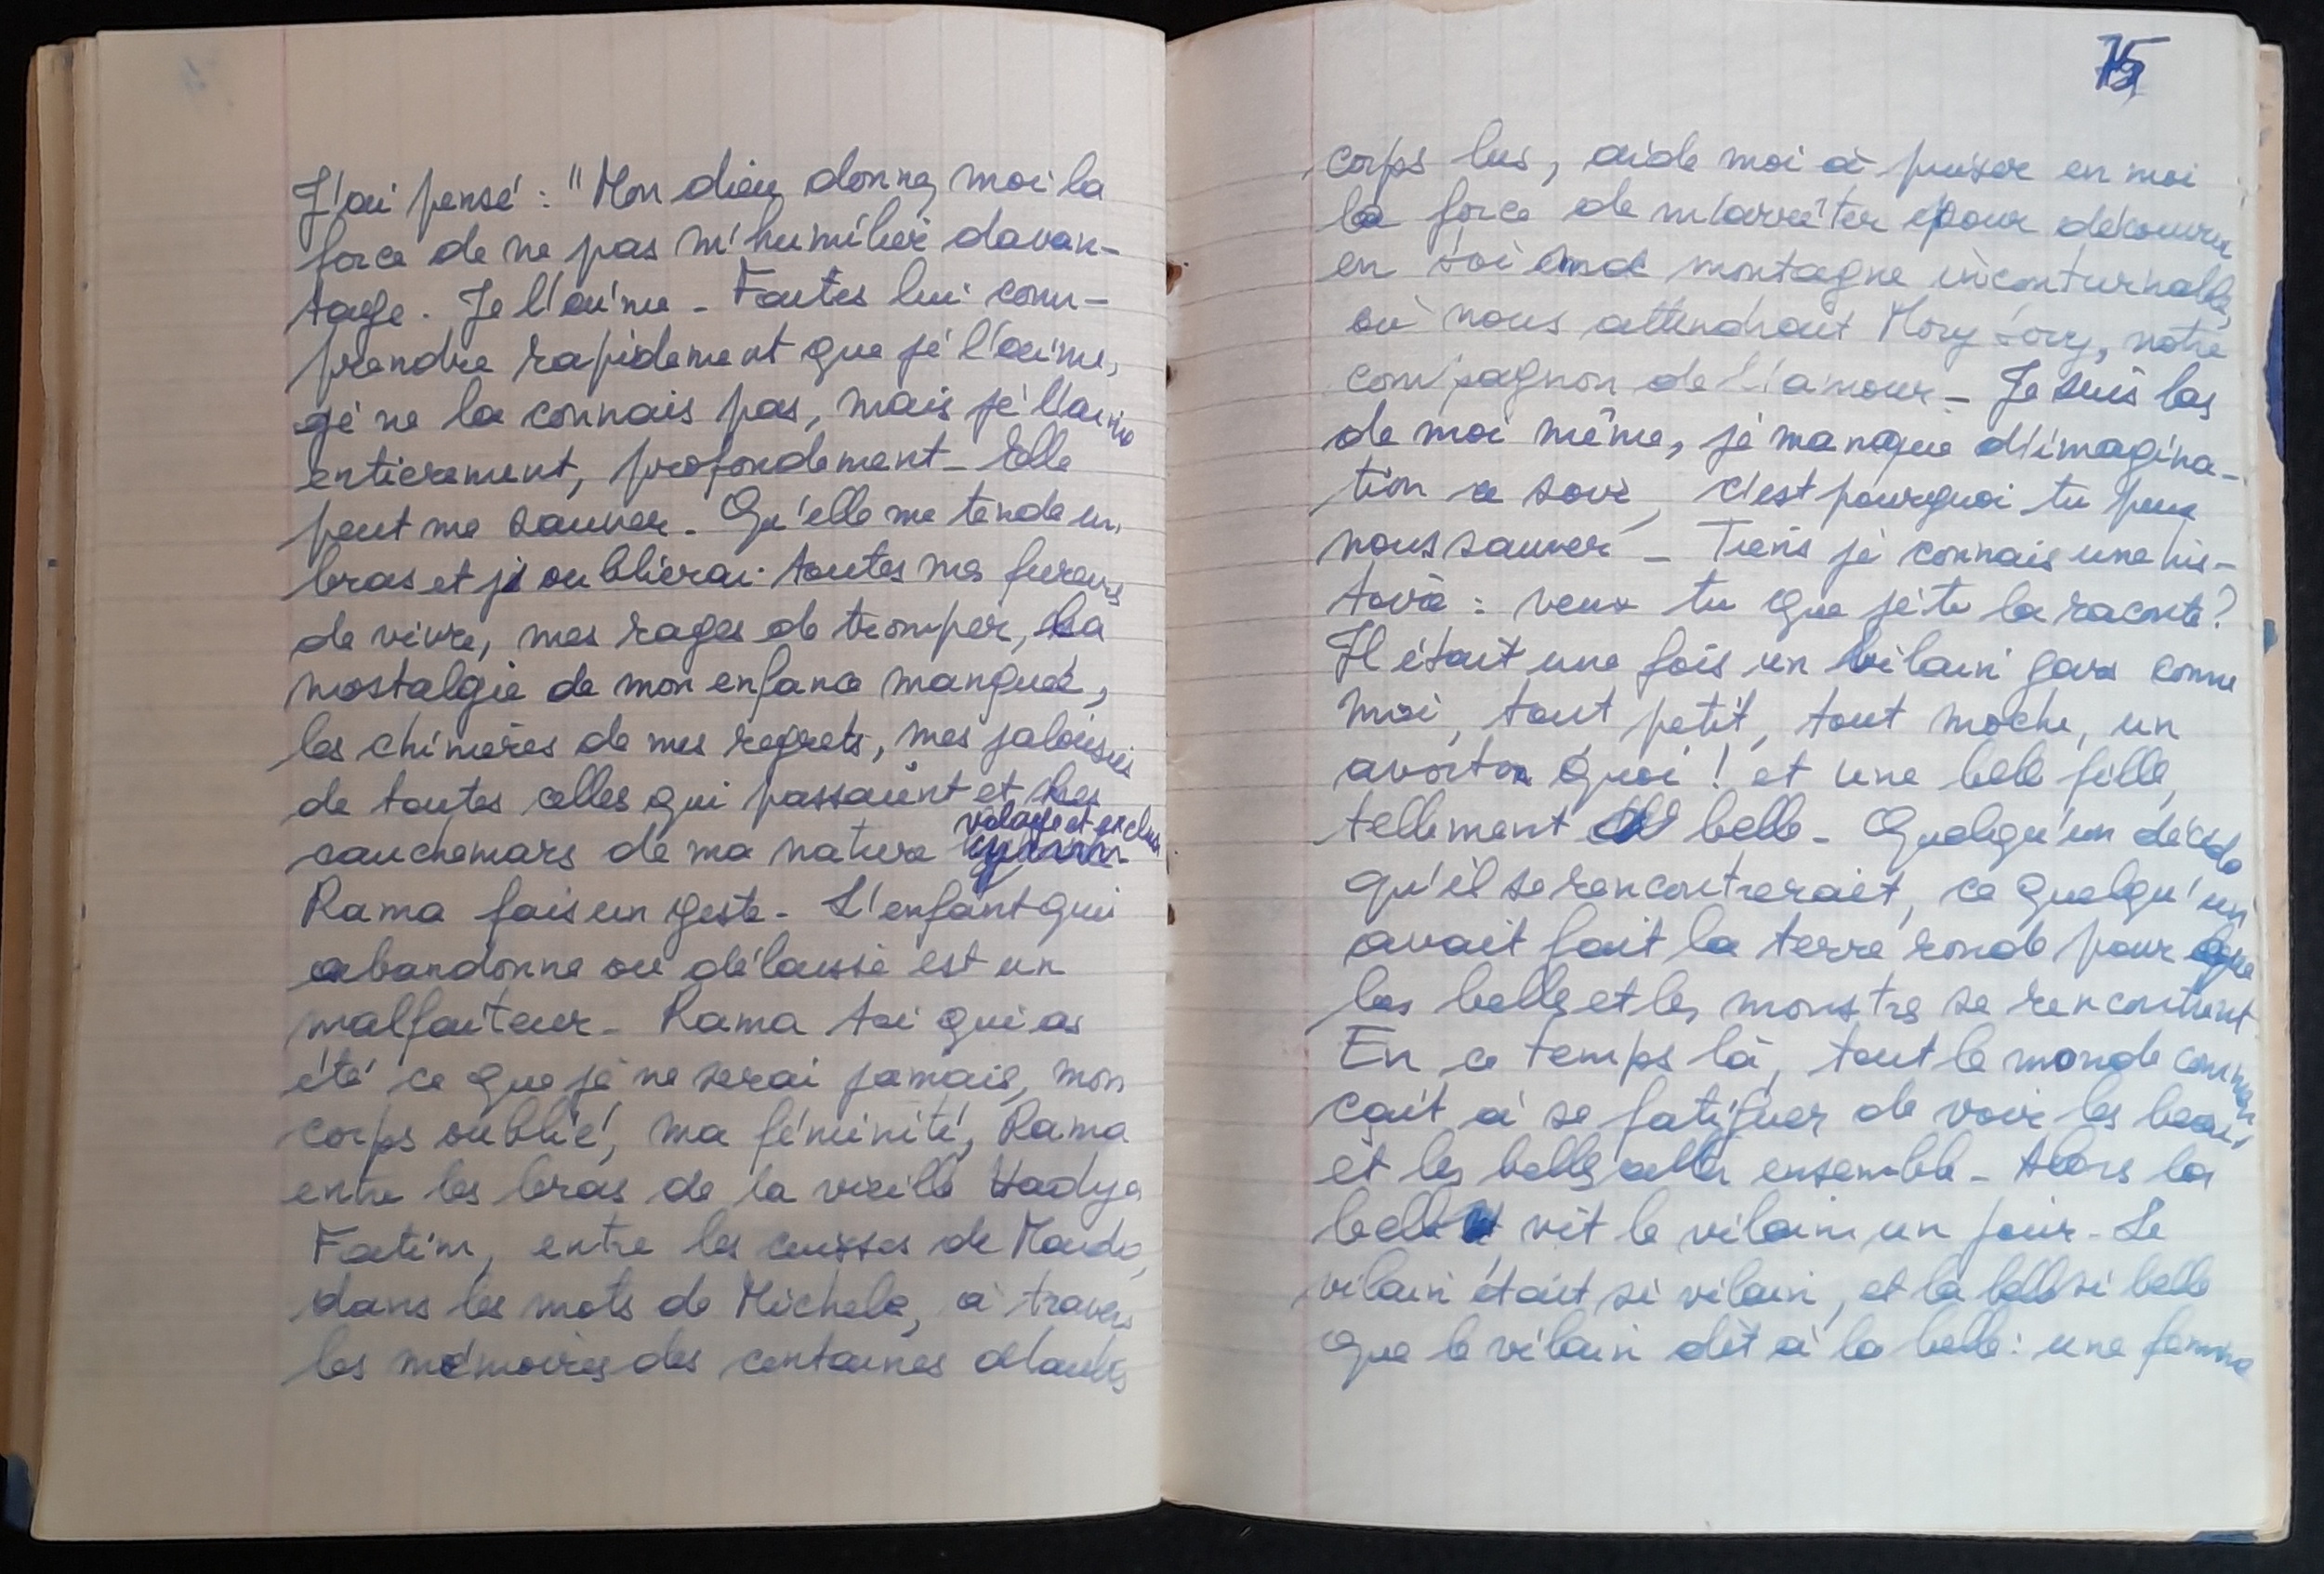 J'ai pensé : "Mon dieu donnez moi la
force de ne pas m'humilier davan-
tage. Je l'aime - Faites lui com-
prendre rapidement que je l'aime,
je ne la connais pas, mais je l'aime
entierement, profondement - Elle
peut me sauver - Qu'elle me tende un
bras et j'oublierai toutes mes fureurs
de vivre, mes rages de tromper, la
nostalgie de mon enfance manquée,
les chimères de mes regrets, mes jalousies
de toutes celles qui passaient et les
volage et
cauchemars de ma nature
Rama fais un geste - L'enfant qui
abandonne ou délaisse est un
malfaiteur - Rama toi qui as
été ce que je ne serai jamais, mon
corps oublié, ma féminité, Rama
entre les bras de la vieille Hadya
Fatim, entre les cuisses de
dans les mots de Michele, à travers
les mémoires des centaines d'autres
75
corps lus, aide moi à puiser en moi
la force de m'arrêter pour découvrir
en toi montagne incontournable,
où nous attendrait Mory Fory, notre
compagnon de l'amour - Je suis las
de moi même, je manque d'imagina-
tion ce soir, c'est pourquoi tu peux
nous sauver - Tiens je connais une his-
toire : veux tu que je te la raconte ?
Il était une fois un vilain gars comme
moi, tout petit, tout moche, un
avorton quoi ! et une belle fille,
tellement belle - Quelqu'un décida
qu'il se rencontrerait, ce quelqu'un
avait fait la terre ronde pour que
les belles et les monstres se rencontrent
En ce temps là, tout le monde commen
çait à se fatiguer de voir les beaux
et les belles aller ensemble - Alors la
belle vit le vilain un jour - Le
vilain était si vilain, et la belle si belle
que le vilain dit à la belle : une femme